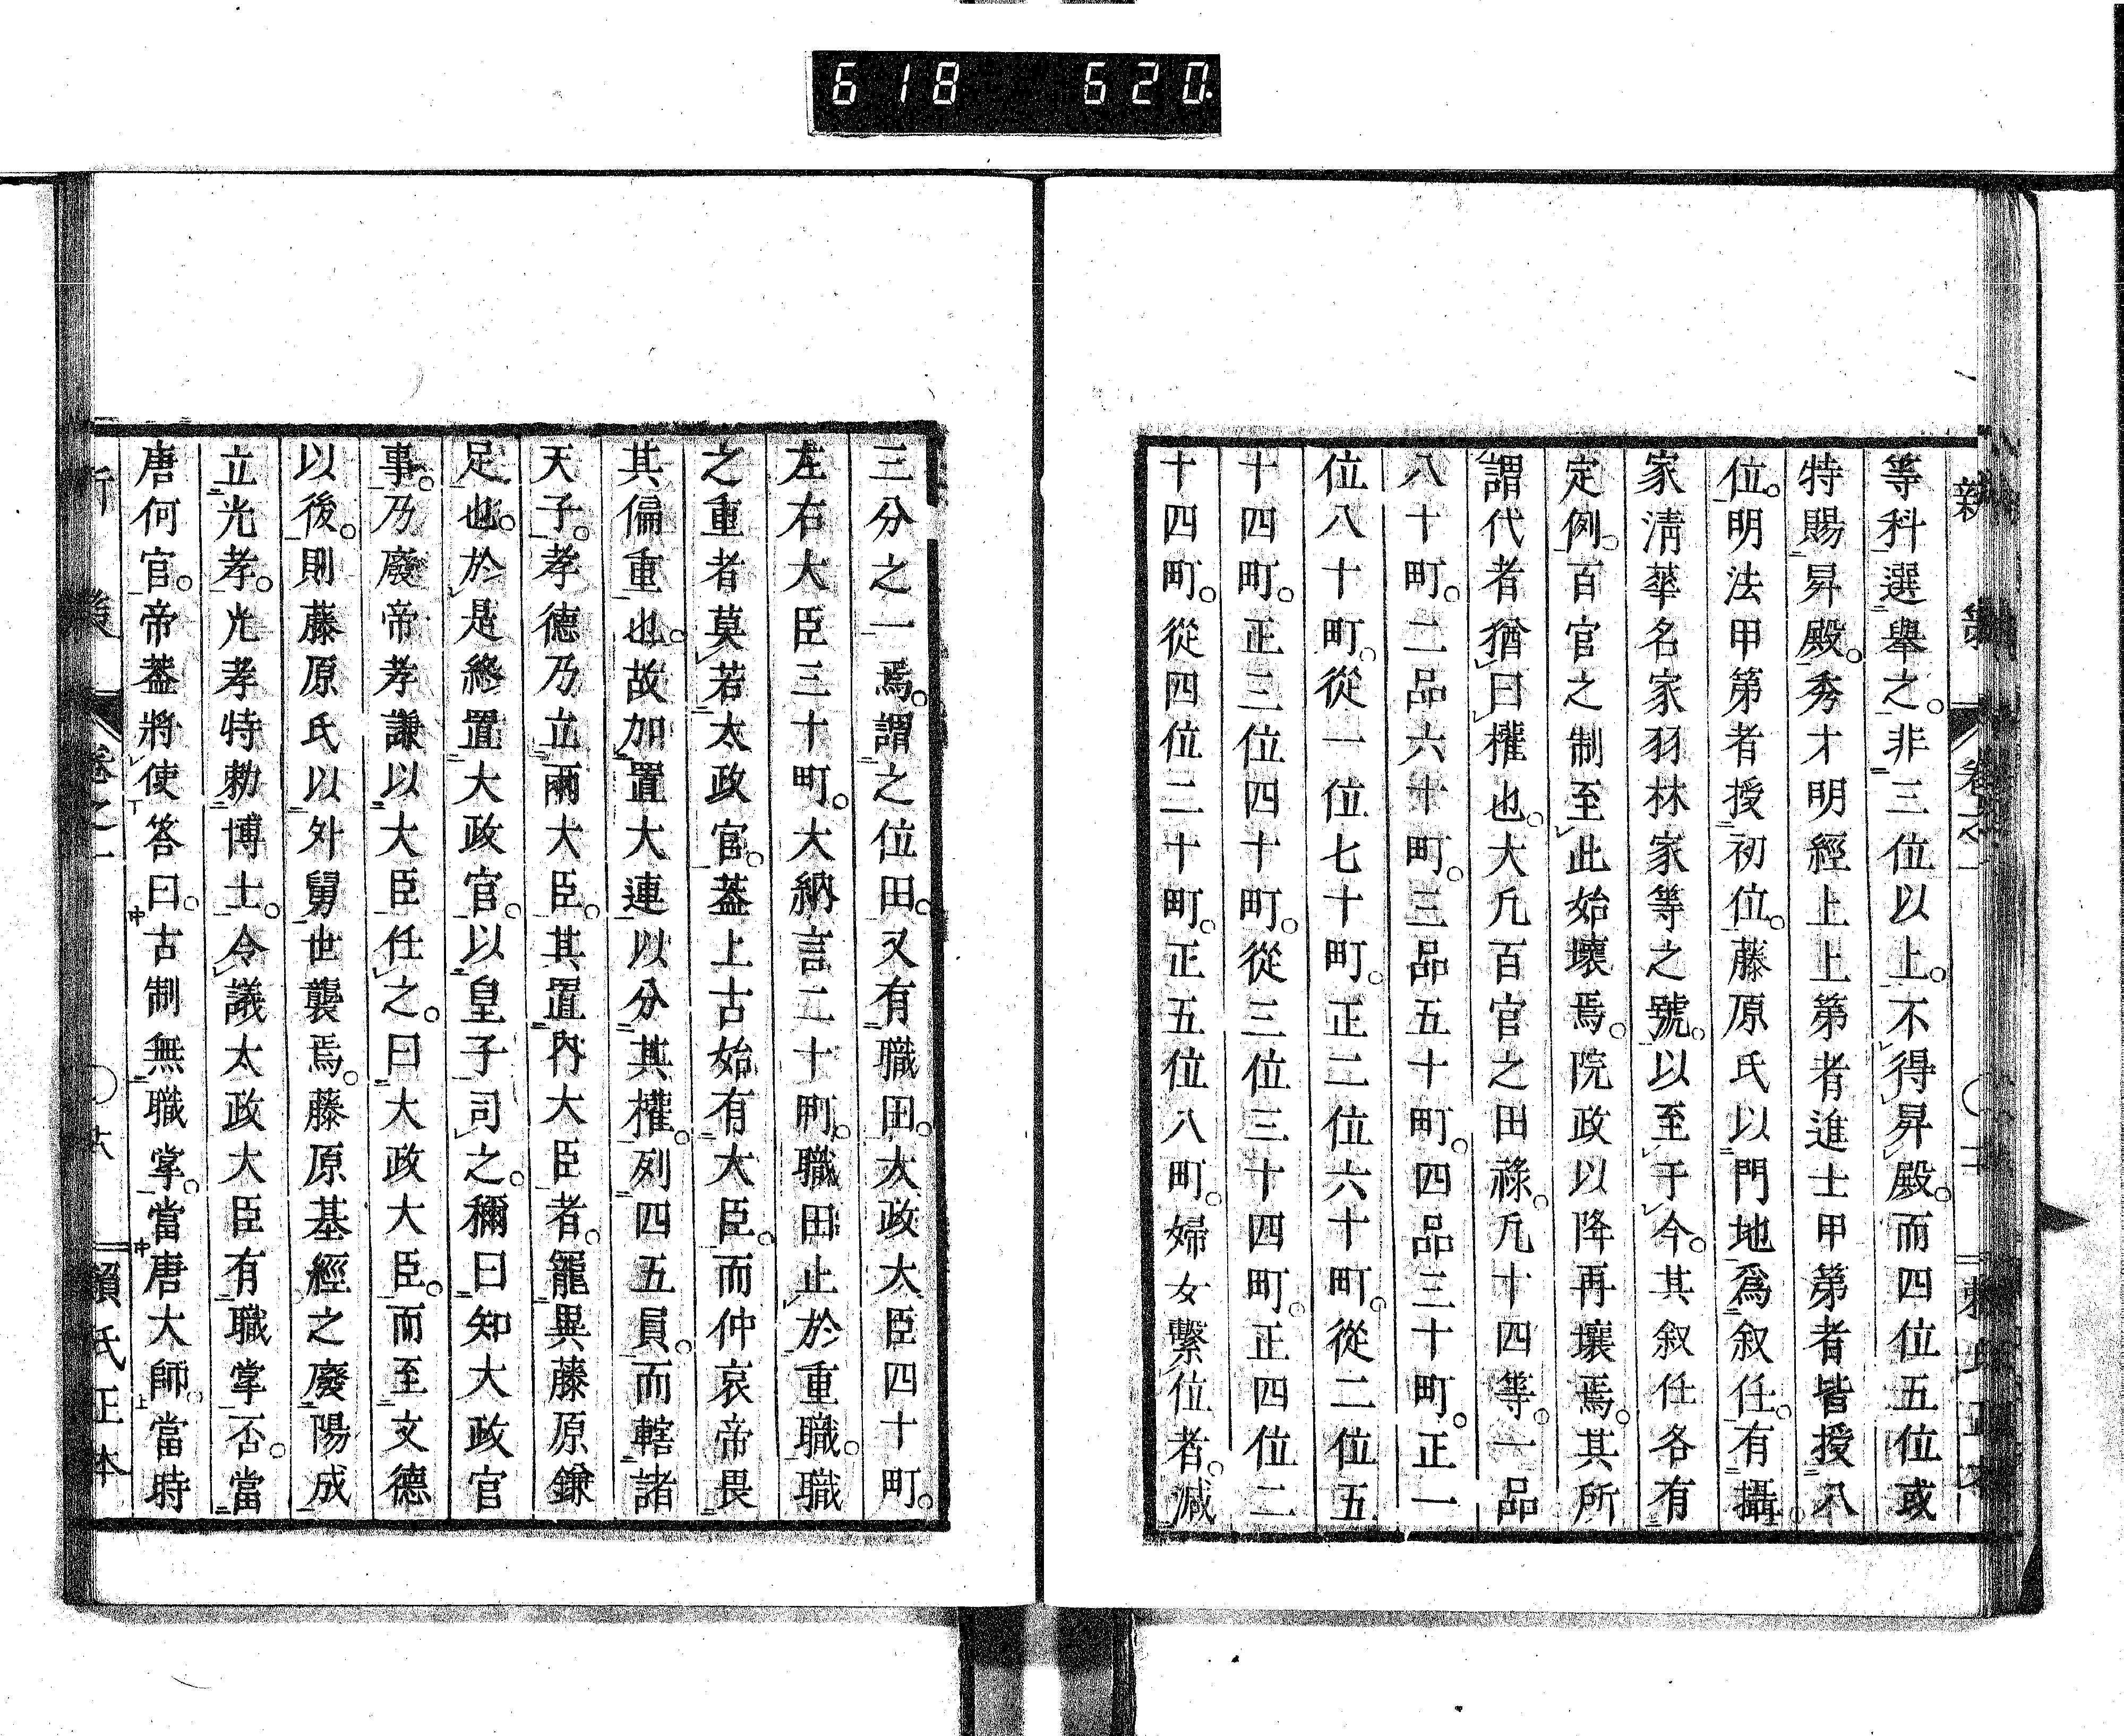 618 620.
新策 卷之一
等科選舉之。非三位以上。不得昇殿。而四位五位或
特賜昇殿。秀才明經上上第者進士甲第者皆授八
位。明法甲第者授初位。藤原氏以門地爲叙任。有攝
家淸華名家羽林家等之號。以至于今。其叙任各有
定例。百官之制至此始壞焉。院政以降再壞焉。其所
謂代者猶曰權也。大凡百官之田祿。凡十四等。一品
八十町。二品六十町。三品五十町。四品三十町。正一
位八十町。從一位七十町。正二位六十町。從二位五
十四町。正三位四十町。從三位三十四町。正四位二
十四町。從四位二十町。正五位八町。婦女繫位者。減
三分之一焉。謂之位田。又有職田。太政大臣四十町。
左右大臣三十町。大納言二十町。職田止於重職。職
之重者莫若太政官。蓋上古始有大臣。而仲哀帝畏
其偏重也。故加置大連以分其權。列四五員。而轄諸
天子。孝德乃立兩大臣。其置內大臣者。寵異藤原鎌
足也。於是終置大政官。以皇子司之。稱曰知大政官
事。乃廢帝孝謙以大臣任之。曰大政大臣。而至文德
以後。則藤原氏以外舅世襲焉。藤原基經之廢陽成
立光孝。光孝特勅博士。令議太政大臣有職掌否。當
唐何官。帝蓋將使答曰。古制無職掌。當唐大師。當時
卷之一 賴氏正本